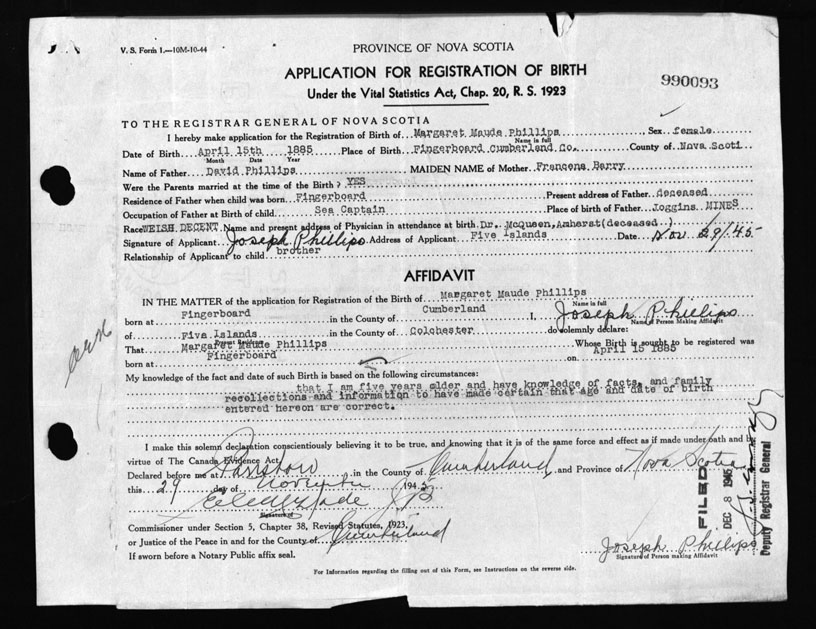 V. S. Form 1.—10M-10-44
PROVINCE OF NOVA SCOTIA
APPLICATION FOR REGISTRATION OF BIRTH
990093
Under the Vital Statistics Act, Chap. 20, R. S. 1923
TO THE REGISTRAR GENERAL OF NOVA SCOTIA
I hereby make application for the Registration of Birth of Margaret Maude Phillips, Sex female
Name in full
Date of Birth April 15th 1885 Place of Birth Fingerboard Cumberland Co. County of Nova Scoti
Month Date Year
Name of Father David Phillips MAIDEN NAME of Mother Francena Barry
Were the Parents married at the time of the Birth? YES
Residence of Father when child was born Fingerboard Present address of Father deceased
Occupation of Father at Birth of child Sea Captain Place of birth of Father Joggins MINES
Race WELSH DECENT Name and present address of Physician in attendance at birth Dr. McQueen, Amherst (deceased)
Signature of Applicant Joseph Phillips Address of Applicant Five Islands Date Nov 29/45
Relationship of Applicant to child brother
AFFIDAVIT
IN THE MATTER of the application for Registration of the Birth of Margaret Maude Phillips
Name in full
born at Fingerboard in the County of Cumberland I, Joseph Phillips
Name of Person Making Affidavit
of Five Islands in the County of Colchester do solemnly declare:
Present Residence
That Margaret Maude Phillips Whose Birth is sought to be registered was
born at Fingerboard on April 15 1885
My knowledge of the fact and date of such Birth is based on the following circumstances:
that I am five years older and have knowledge of facts, and family
recollections and information to have made certain that age and date of birth
entered hereon are correct.
I make this solemn declaration conscientiously believing it to be true, and knowing that it is of the same force and effect as if made under oath and by
virtue of The Canada Evidence Act.
Declared before me at Parrsboro in the County of Cumberland and Province of Nova Scotia
this 29 day of November 1945
Signature of
Commissioner under Section 5, Chapter 38, Revised Statutes, 1923,
or Justice of the Peace in and for the County of Cumberland
If sworn before a Notary Public affix seal.
Joseph Phillips
Signature of Person making Affidavit
FILED
DEC 8 1945
Deputy Registrar General
For Information regarding the filling out of this Form, see Instructions on the reverse side.